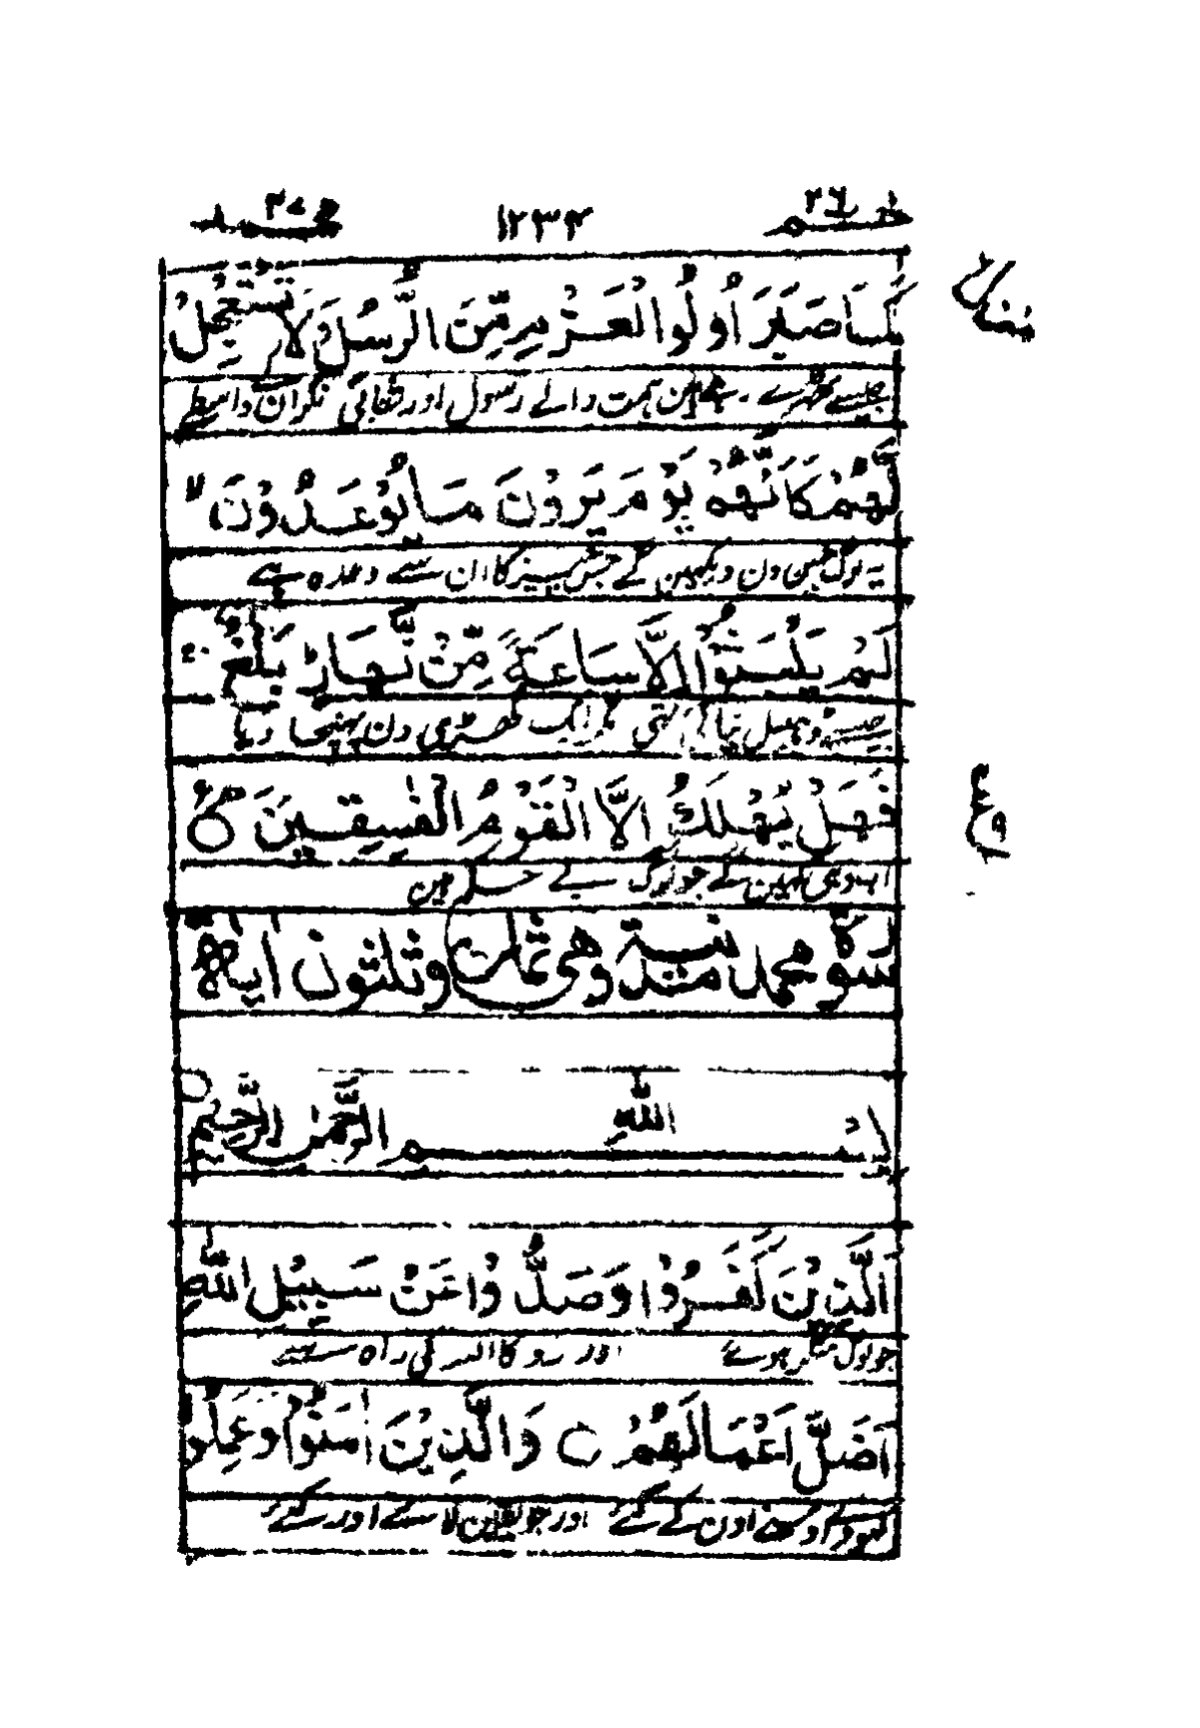 حٰم ٢٦ ١٢٣٤ محمد ٤٧
كَمَا صَبَرَ اُولُوا الْعَزْمِ مِنَ الرُّسُلِ وَلَا تَسْتَعْجِلْ
جیسے ٹھہرے رہے ہین ہمت والے رسول اور شتابی نکر ان واسطے
لَّهُمْ كَاَنَّهُمْ يَوْمَ يَرَوْنَ مَا يُوْعَدُوْنَ لا
یہ لوگ جس دن دیکھین گے جس چیز کا ان سے وعدہ ہے
لَمْ يَلْبَثُوْٓا اِلَّا سَاعَةً مِّنْ نَّهَارٍ بَلٰغٌ
جیسے ڈھیل نپائی تھی مگر ایک گھڑی دن پہنچا دیا
فَهَلْ يُهْلَكُ اِلَّا الْقَوْمُ الْفٰسِقُوْنَ
اب وہی کھپین گے جو لوگ بے حکم ہین
سورة محمد مدنية وهى ثمان وثلثون اية
بِسْمِ اللّٰهِ الرَّحْمٰنِ الرَّحِيْمِ
اَلَّذِيْنَ كَفَرُوْا وَصَدُّوْا عَنْ سَبِيْلِ اللّٰهِ
جو لوگ منکر ہوئے اور روکا اللہ کی راہ سے
اَضَلَّ اَعْمَالَهُمْ وَالَّذِيْنَ اٰمَنُوْا وَعَمِلُوا
کھو دئے اوسنے اون کے کئے اور جو یقین لائے اور کئے